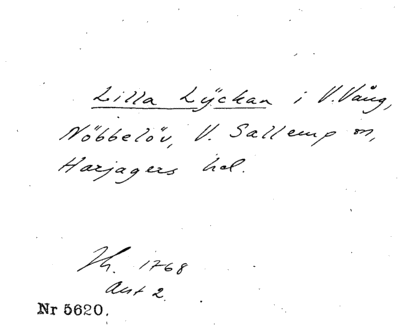 Lilla Lÿckan i V. Vång,
Nöbbelöv, V. Sallerup sn,
Harjagers hd.
Jh. 1768
Akt 2.
Nr 5620.